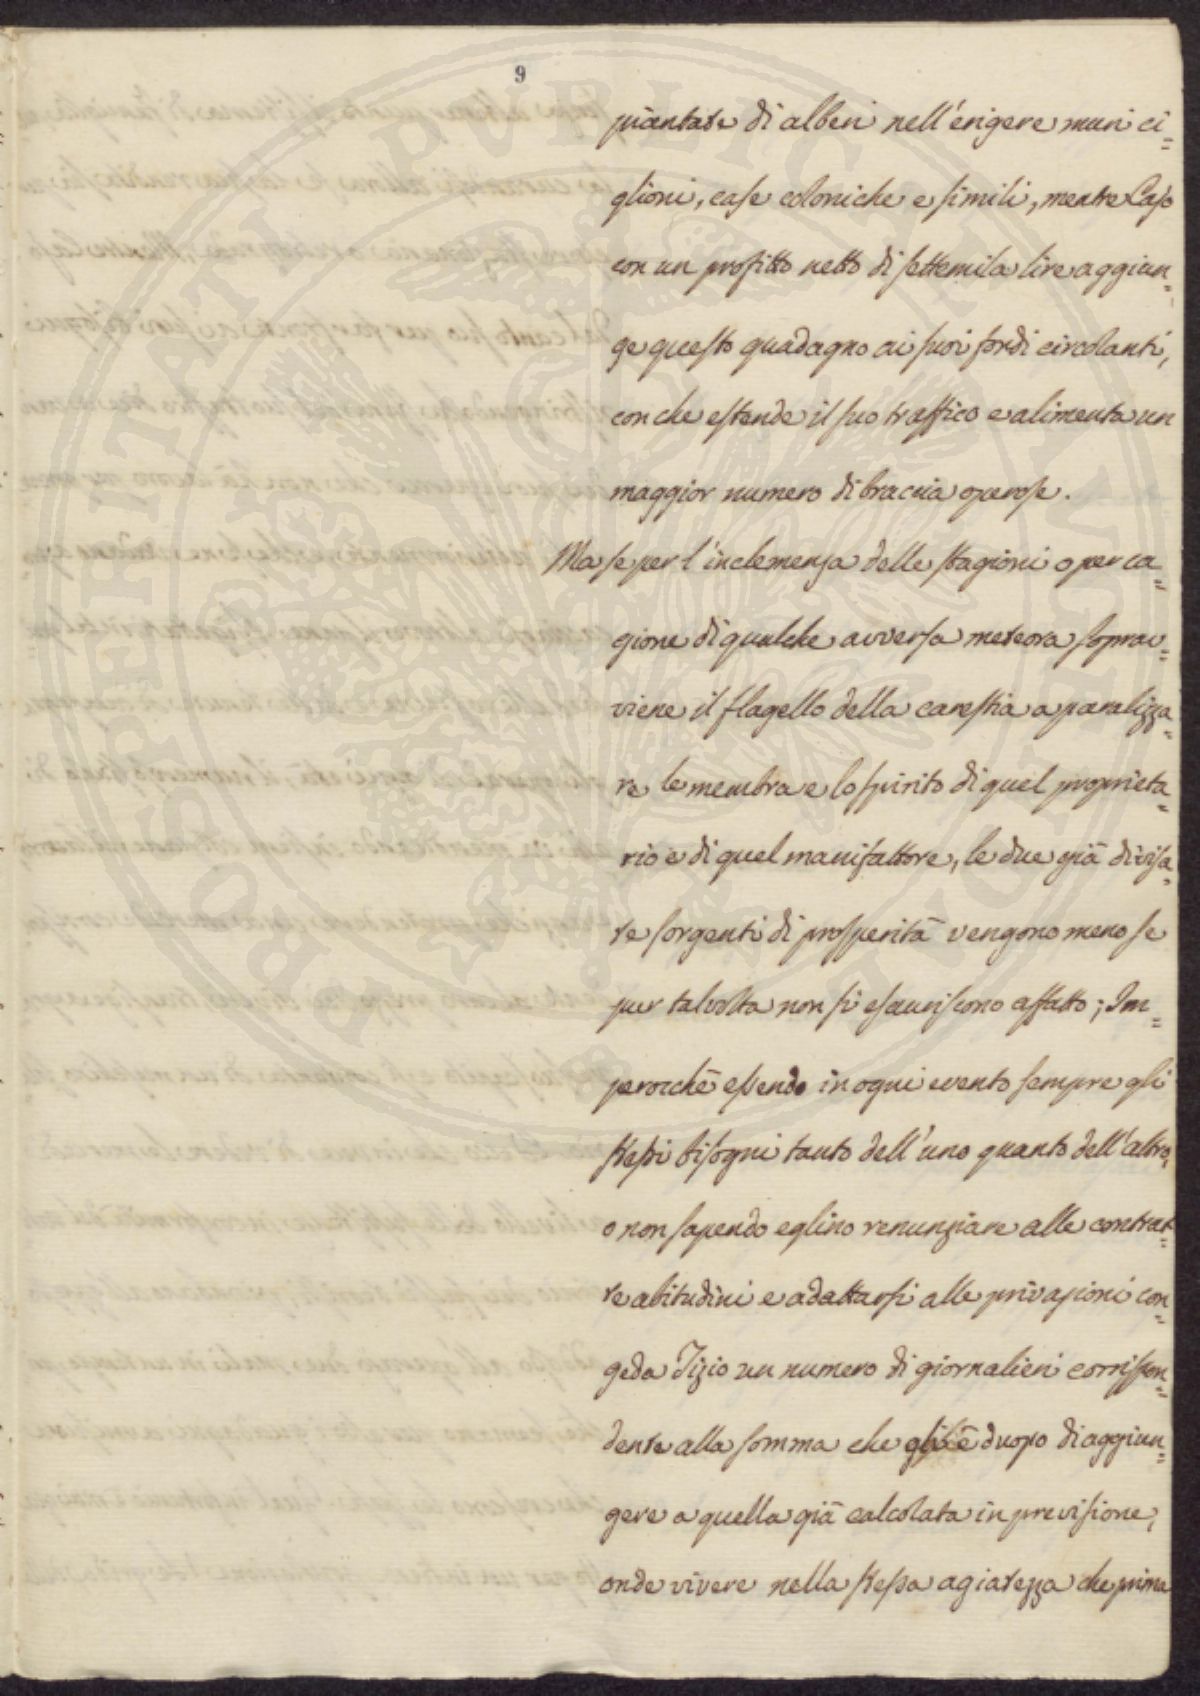 9
piantate di alberi nell'erigere muri ci=
glioni, case coloniche e simili, mentre Cajo
con un profitto netto di settemila lire aggiun=
ge questo guadagno ai suoi fondi circolanti,
con che estende il suo traffico e alimenta un
maggior numero di braccia operose.
Ma se per l'inclemenza delle stagioni o per ca=
gione di qualche avversa meteora soprav=
viene il flagello della carestia a paralizza=
re le membra e lo spirito di quel proprieta=
rio e di quel manifattore, le due già divisa=
te sorgenti di prosperità vengono meno se
pur talvolta non si esauriscono affatto; Im=
perocchè essendo in ogni evento sempre gli
stessi bisogni tanto dell'uno quanto dell'altro,
o non sapendo eglino renunziare alle contrat=
te abitudini e adattarsi alle privazioni con=
geda Tizio un numero di giornalieri corrispon=
dente alla somma che gli è duopo di aggiun=
gere a quella già calcolata in previsione,
onde vivere nella stessa agiatezza che prima
PROSPERITATI PVBLICAE AVGENDAE